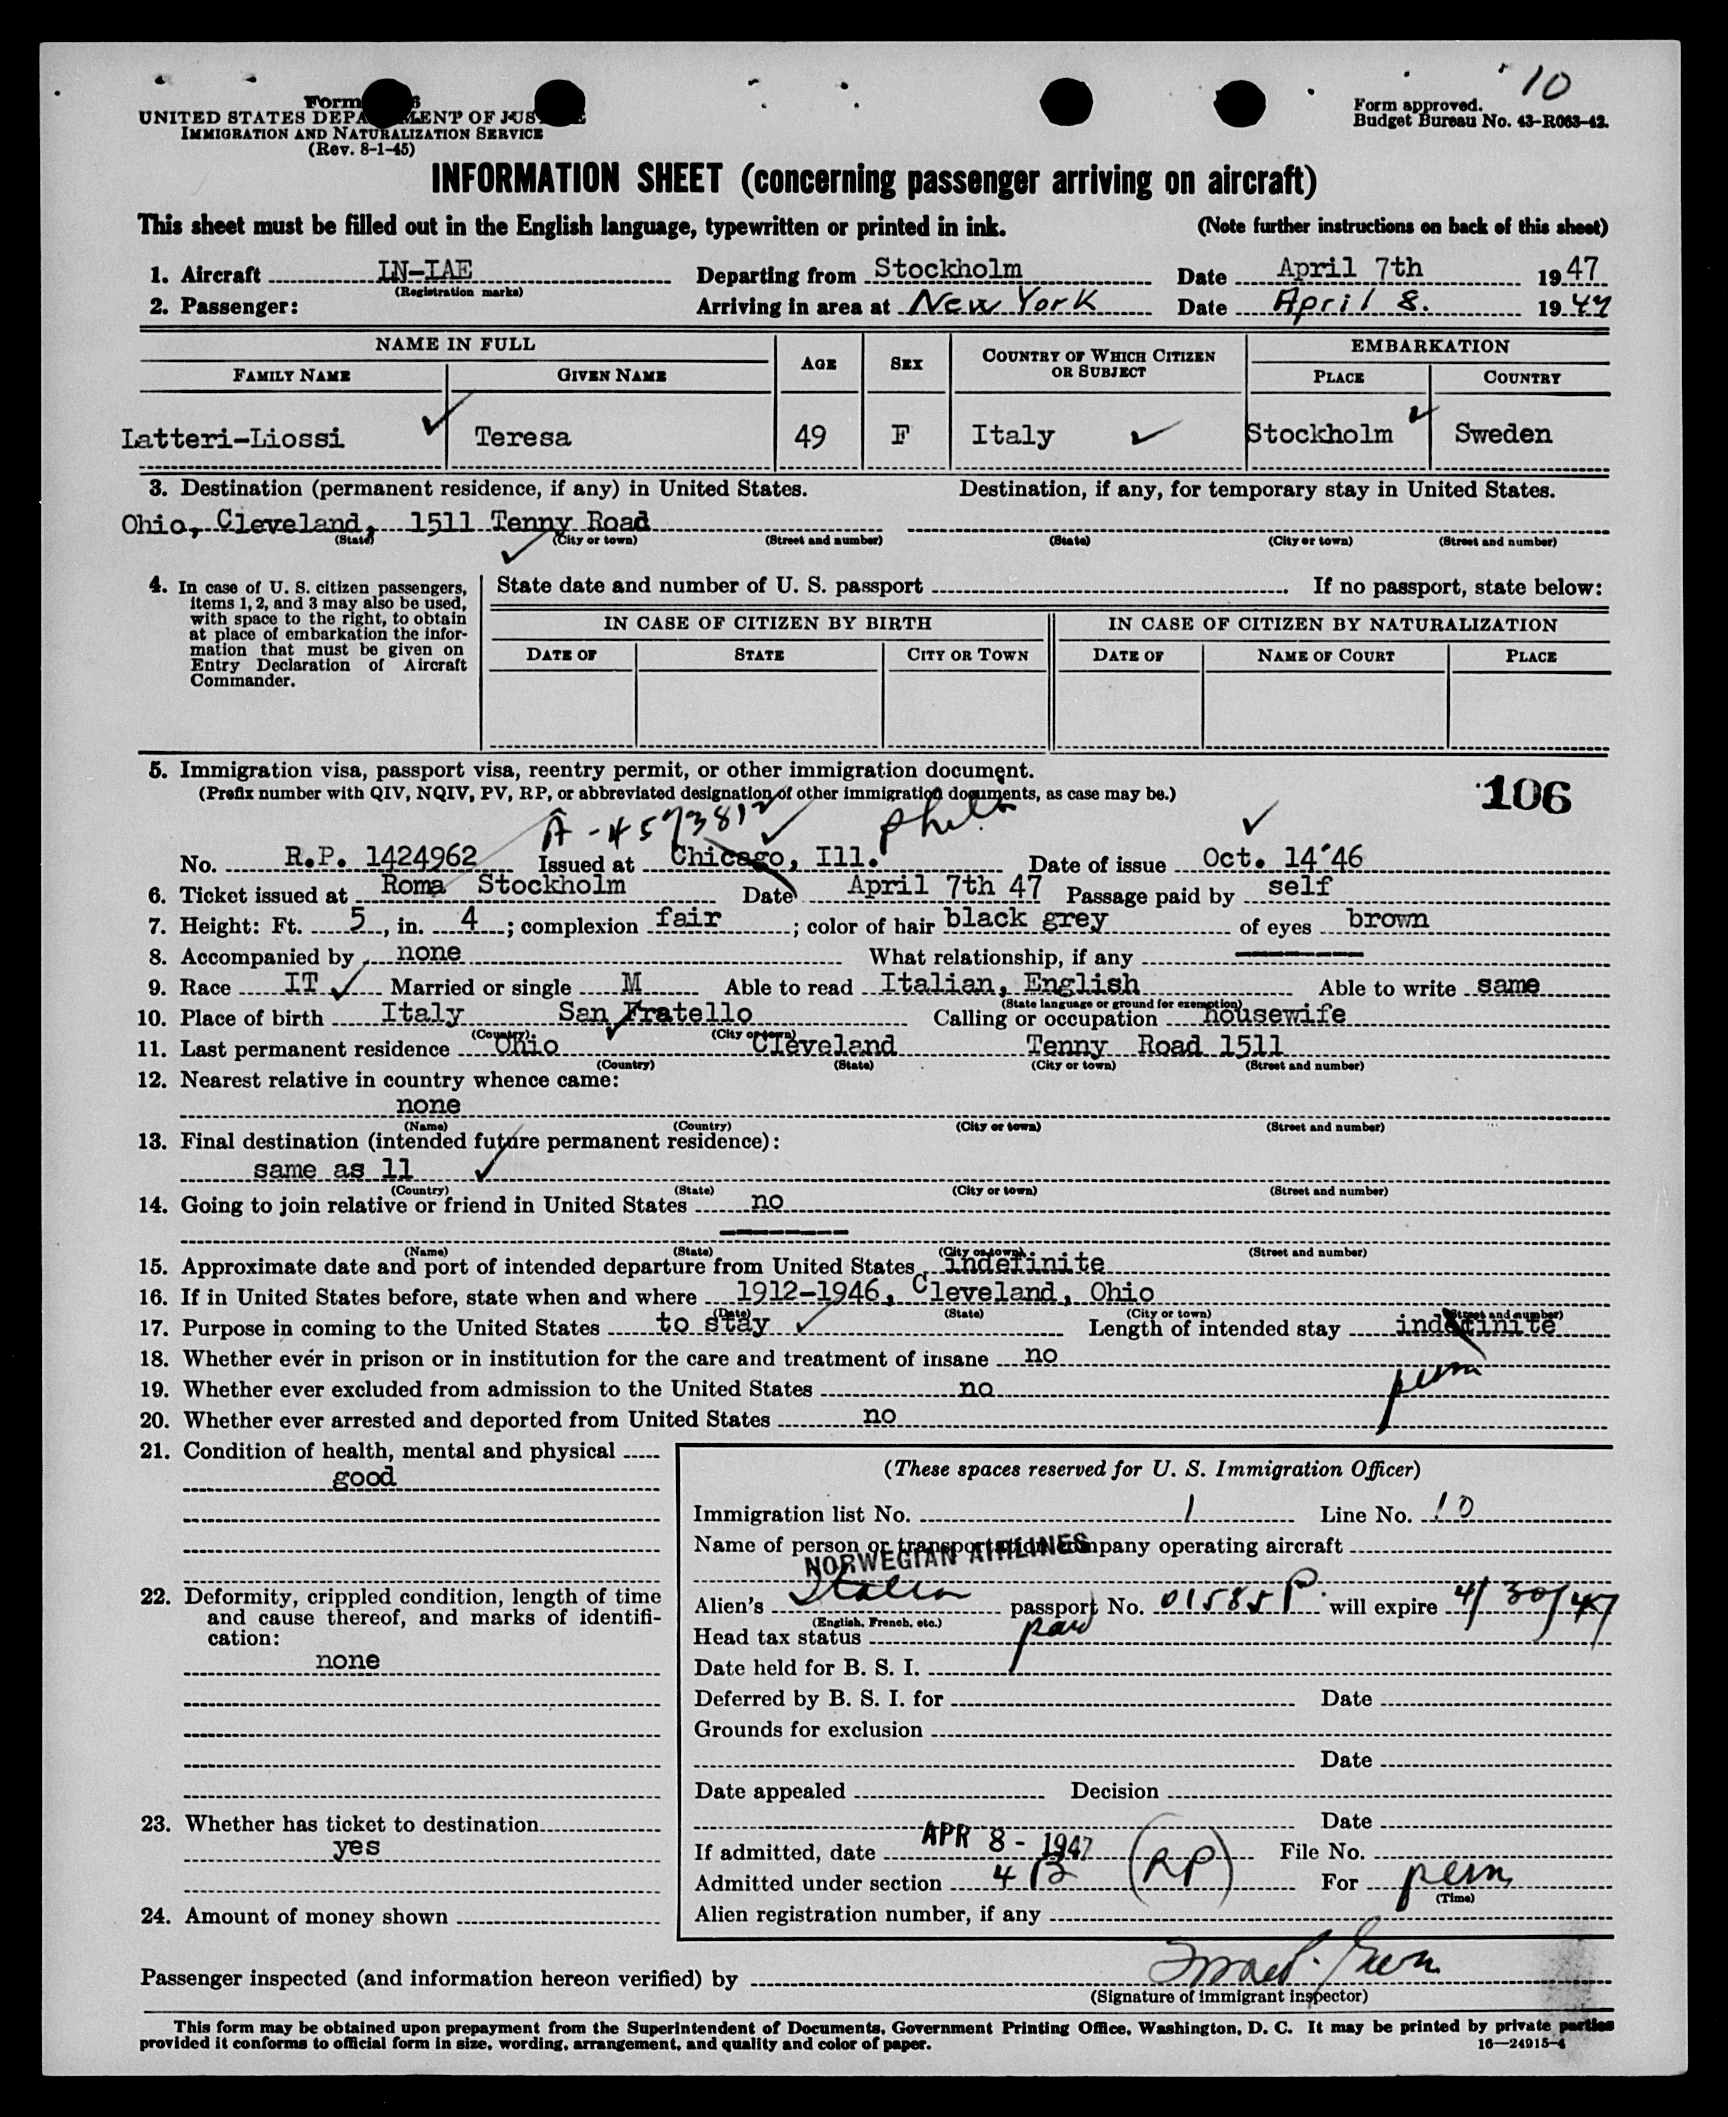 10
Form
UNITED STATES DEPARTMENT OF JUSTICE
IMMIGRATION AND NATURALIZATION SERVICE
(Rev. 8-1-45)
Form approved.
Budget Bureau No. 43-R063-42.
INFORMATION SHEET (concerning passenger arriving on aircraft)
This sheet must be filled out in the English language, typewritten or printed in ink. (Note further instructions on back of this sheet)
1. Aircraft IN-IAE Departing from Stockholm Date April 7th 1947
(Registration marks)
2. Passenger: Arriving in area at New York Date April 8. 1947
NAME IN FULL AGE SEX COUNTRY OF WHICH CITIZEN OR SUBJECT EMBARKATION
FAMILY NAME GIVEN NAME PLACE COUNTRY
Latteri-Liossi Teresa 49 F Italy Stockholm Sweden
3. Destination (permanent residence, if any) in United States. Destination, if any, for temporary stay in United States.
Ohio, Cleveland, 1511 Tenny Road
(State) (City or town) (Street and number) (State) (City or town) (Street and number)
4. In case of U. S. citizen passengers, items 1, 2, and 3 may also be used, with space to the right, to obtain at place of embarkation the information that must be given on Entry Declaration of Aircraft Commander.
State date and number of U. S. passport If no passport, state below:
IN CASE OF CITIZEN BY BIRTH IN CASE OF CITIZEN BY NATURALIZATION
DATE OF STATE CITY OR TOWN DATE OF NAME OF COURT PLACE
5. Immigration visa, passport visa, reentry permit, or other immigration document.
(Prefix number with QIV, NQIV, PV, RP, or abbreviated designation of other immigration documents, as case may be.)
106
A-4573812 Phila
No. R.P. 1424962 Issued at Chicago, Ill. Date of issue Oct. 14'46
6. Ticket issued at Roma Stockholm Date April 7th 47 Passage paid by self
7. Height: Ft. 5, in. 4; complexion fair; color of hair black grey of eyes brown
8. Accompanied by none What relationship, if any
9. Race IT Married or single M Able to read Italian, English Able to write same
(State language or ground for exemption)
10. Place of birth Italy San Fratello Calling or occupation housewife
(Country) (City or town)
11. Last permanent residence Ohio Cleveland Tenny Road 1511
(Country) (State) (City or town) (Street and number)
12. Nearest relative in country whence came:
none
(Name) (Country) (City or town) (Street and number)
13. Final destination (intended future permanent residence):
same as 11
(Country) (State) (City or town) (Street and number)
14. Going to join relative or friend in United States no
(Name) (State) (City or town) (Street and number)
15. Approximate date and port of intended departure from United States indefinite
16. If in United States before, state when and where 1912-1946, Cleveland, Ohio
(Date) (State) (City or town) (Street and number)
17. Purpose in coming to the United States to stay Length of intended stay indefinite
18. Whether ever in prison or in institution for the care and treatment of insane no
perm
19. Whether ever excluded from admission to the United States no
20. Whether ever arrested and deported from United States no
21. Condition of health, mental and physical
good
22. Deformity, crippled condition, length of time and cause thereof, and marks of identification:
none
23. Whether has ticket to destination
yes
24. Amount of money shown
(These spaces reserved for U. S. Immigration Officer)
Immigration list No. 1 Line No. 10
Name of person or transportation company operating aircraft
NORWEGIAN AIRLINES
Alien's Italian passport No. 01585P will expire 4/30/47
(English, French, etc.)
Head tax status paid
Date held for B. S. I.
Deferred by B. S. I. for Date
Grounds for exclusion
Date
Date appealed Decision
Date
If admitted, date APR 8 - 1947 File No.
Admitted under section 4 B (RP) For perm
(Time)
Alien registration number, if any
Passenger inspected (and information hereon verified) by
(Signature of immigrant inspector)
This form may be obtained upon prepayment from the Superintendent of Documents, Government Printing Office, Washington, D. C. It may be printed by private parties
provided it conforms to official form in size, wording, arrangement, and quality and color of paper. 16—24915-4